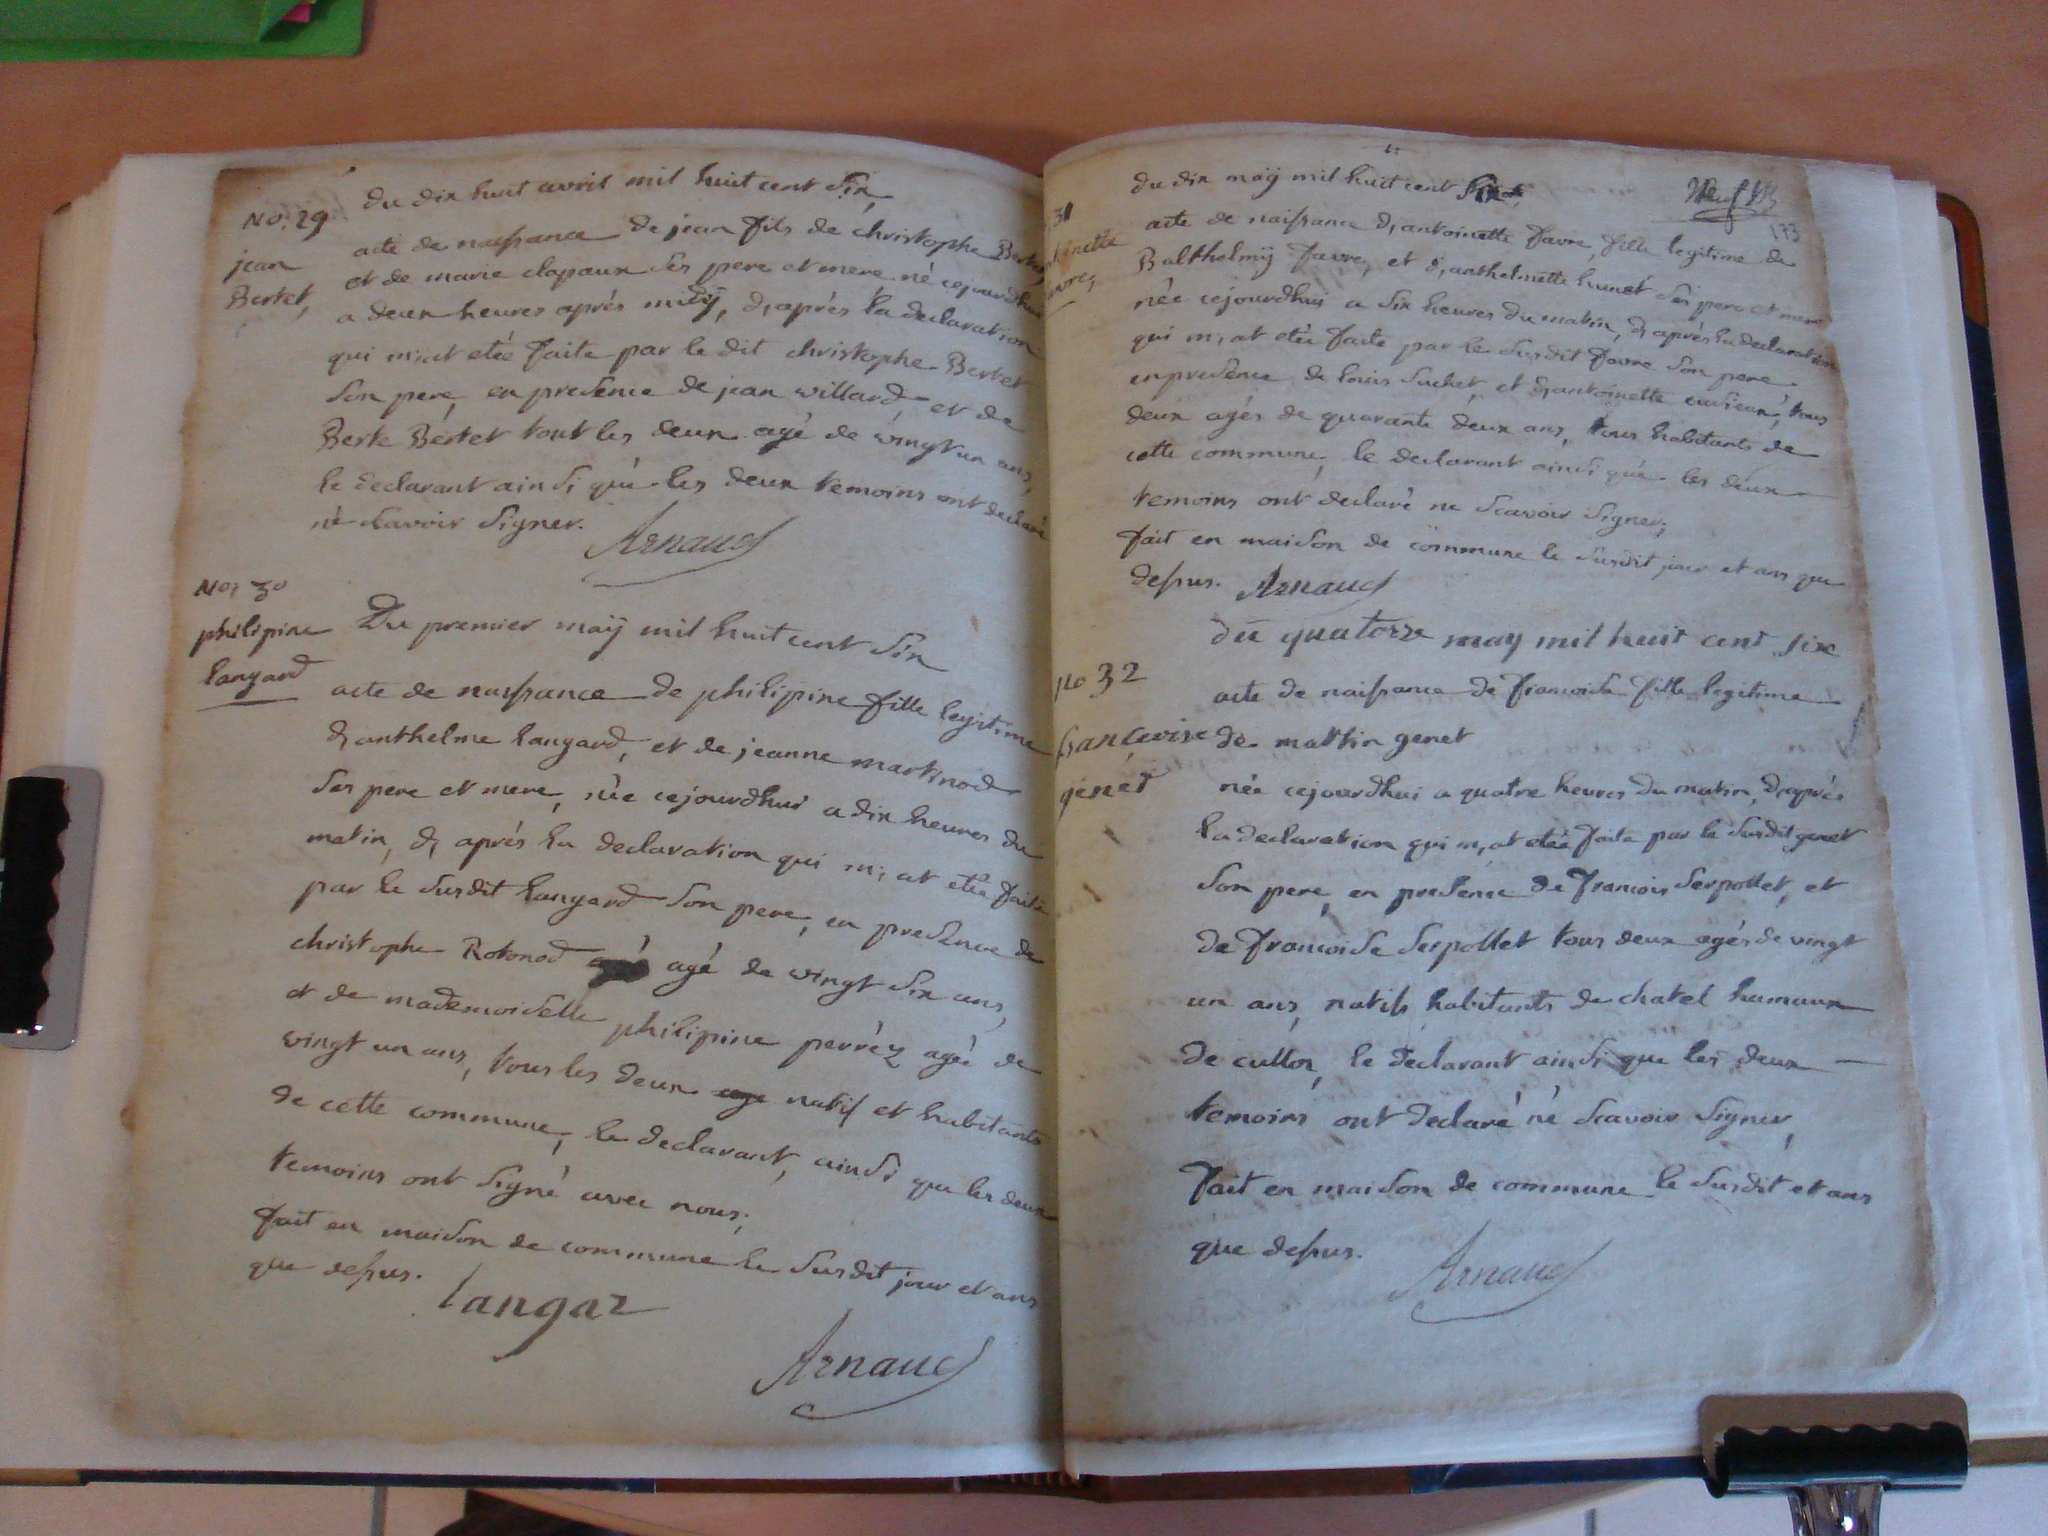 du dix huit avril mil huit cent Six,
No; 29
jean
Bertet,
acte de naissance de jean fils de christophe Bertet,
et de marie clapaux Ses pere et mere né cejourdhui
a deux heures aprés midÿ, d, aprés la declaration
qui m; at etée faite par le dit christophe Bertet
Son pere, en presence de jean willard, et de
Bertet tout les deux agé de wingt un ans,
le declarant ainsi que les deux temoins ont declaré
né scavoir Signer.
Arnaud
No; 30
philipine
langard
Du premier maÿ mil huit cent Six
acte de naissance de philipine fille legitime
d, anthelme langard, et de jeanne martinod
Ses pere et mere, née cejourdhui a dix heures du
matin, d, aprés la declaration qui m; at etée faite
par le Susdit langard Son pere, en presence de
christophe Rotonod agé de wingt Six ans,
et de mademoiselle philipine perréz agéé de
wingt un ans, tous les deux natif et habitants
de cette commune, le declarant, ainsi que les deux
temoins ont Signé avec nous;
fait en maison de commune le Susdit jour et ans
que dessus.
langar
Arnaud
du dix maÿ mil huit cent Six
173
31
favre,
acte de naissance d, antoinette favre, fille legitime de
Balthelmÿ favre, et d, anthelmette Ses pere et mere
née cejourdhui a Six heures du matin, d, aprés la declaration
qui m, at etée faite par le Susdit favre Son pere
en presence de louis Suchet, et d, antoinette tous
deux agés de quarante deux ans, tous habitants de
cette commune, le declarant ainsi que les deux
temoins ont declaré ne Scavoir Signer;
fait en maison de commune le Susdit jour et ans que
dessus. Arnaud
du quatorze may mil huit cent six
no 32
francoise
genet
acte de naissance de francoise fille legitime
de martin genet
née cejourdhui a quatre heures du matin, d, aprés
la declaration qui m, at etéé faite par le Susdit genet
Son pere, en presence de francois Serpollet, et
de francoise Serpollet tous deux agés de vingt
un ans, natifs habitants de chatel hameaux
de culloz, le declarant ainsi que les deux
temoins ont declaré né Scavoir Signer,
fait en maison de commune le Susdit et ans
que dessus.
Arnaud